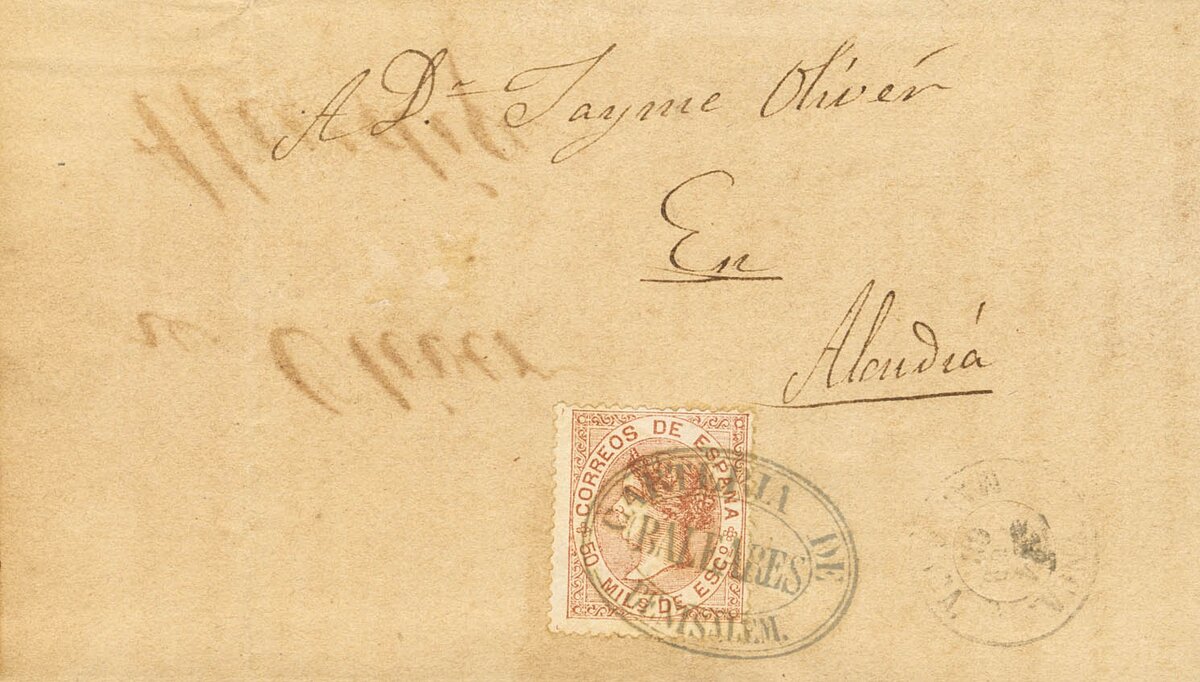 A D.n Jayme Olivér
En
Alcudiá
CORREOS DE ESPAÑA
50 MILS DE ESCO
CARTERIA DE
BALEARES
BENISALEM.